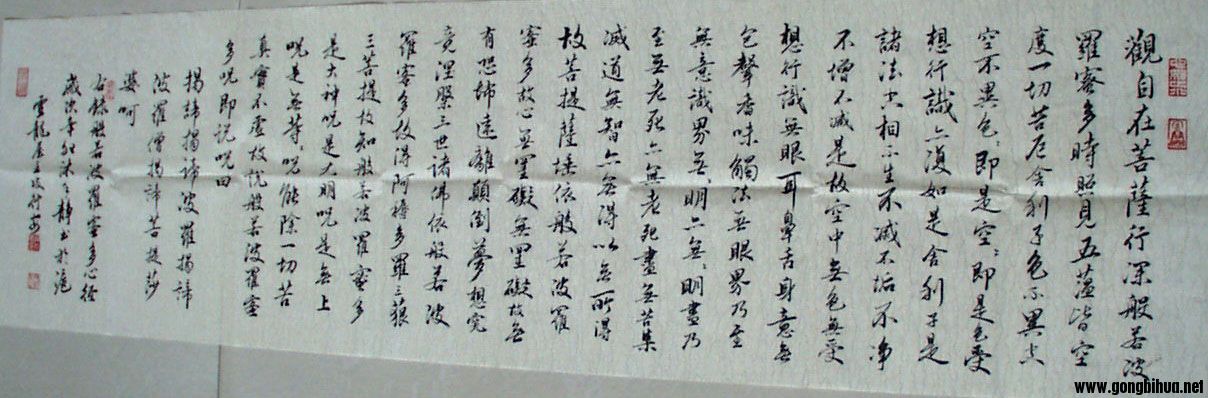 觀自在菩薩行深般若波
羅蜜多時照見五蘊皆空
度一切苦厄舍利子色不異空
空不異色々即是空々即是色受
想行識亦復如是舍利子是
諸法空相不生不滅不垢不净
不增不減是故空中無色無受
想行識無眼耳鼻舌身意無
色聲香味觸法無眼界乃至
無意識界無々明亦無々明盡乃
至無老死亦無老死盡無苦集
滅道無智亦無得以無所得
故菩提薩埵依般若波羅
蜜多故心無罣礙無罣礙故無
有恐怖遠離顛倒夢想究
竟涅槃三世諸佛依般若波
羅蜜多故得阿耨多羅三藐
三菩提故知般若波羅蜜多
是大神咒是大明咒是無上
咒是無等々咒能除一切苦
真實不虛故說般若波羅蜜
多咒即說咒曰
揭諦揭諦波羅揭諦
波羅僧揭諦菩提莎
婆呵
右錄般若波羅蜜多心經
歲次辛卯沐手靜書於滬
雲龍居士
www.gongbihua.net